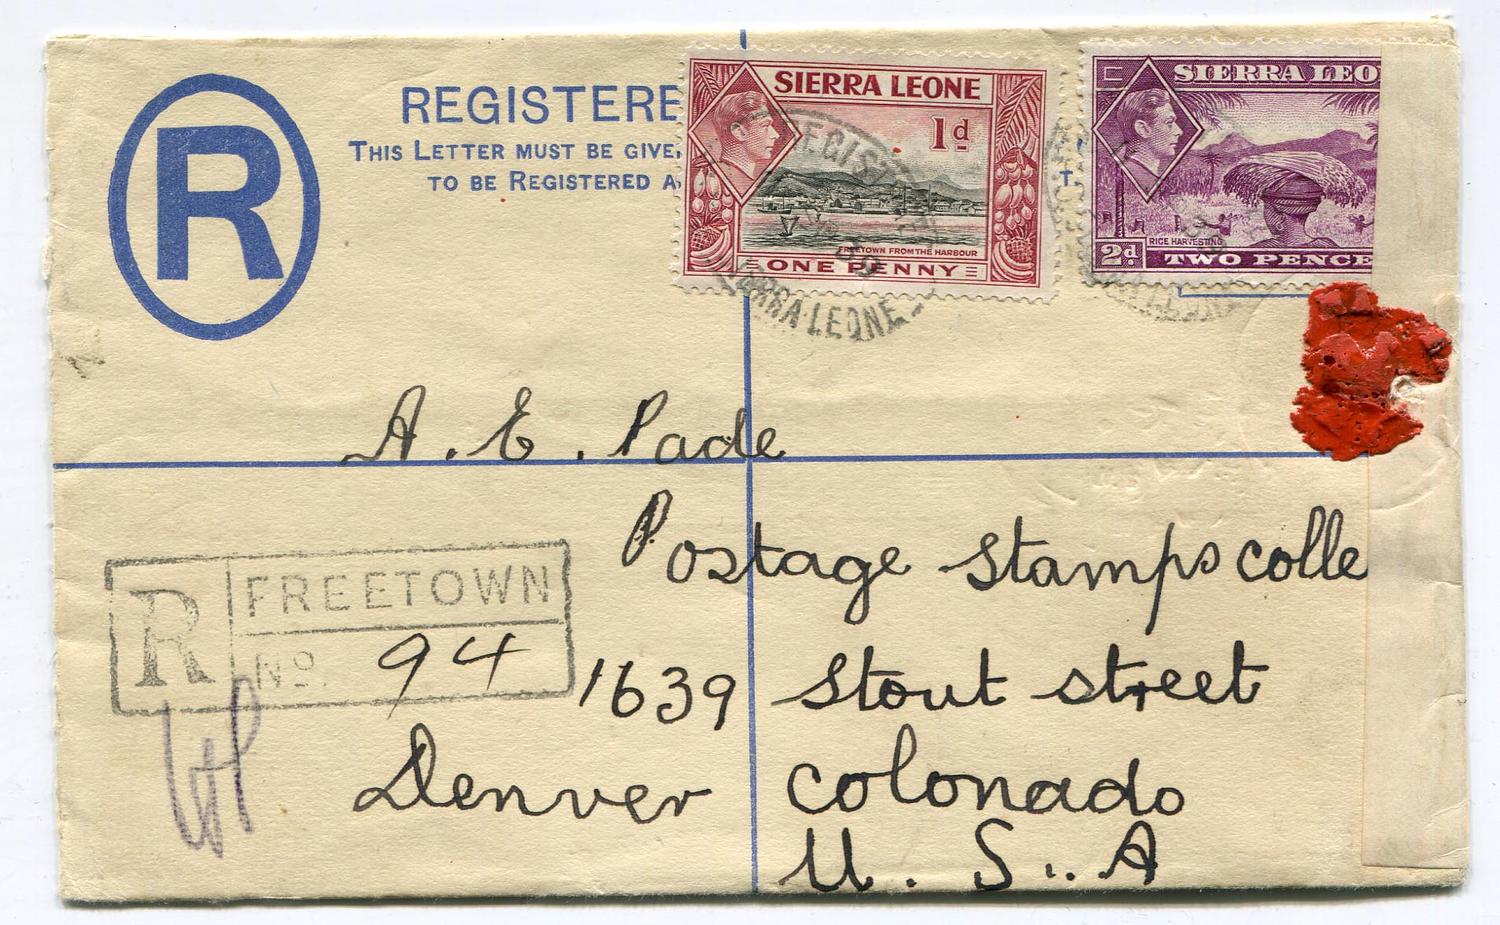 R
REGISTERE
THIS LETTER MUST BE GIVE
TO BE REGISTERED A
T.
SIERRA LEONE
1d
FREETOWN FROM THE HARBOUR
ONE PENNY
SIERRA LEO
RICE HARVESTING
2d TWO PENCE
REGISTE
SIERRA·LEONE
A. E. Pade
Postage stamps colle
R FREETOWN
No. 94
1639 Stout street
Denver Colonado
U. S. A